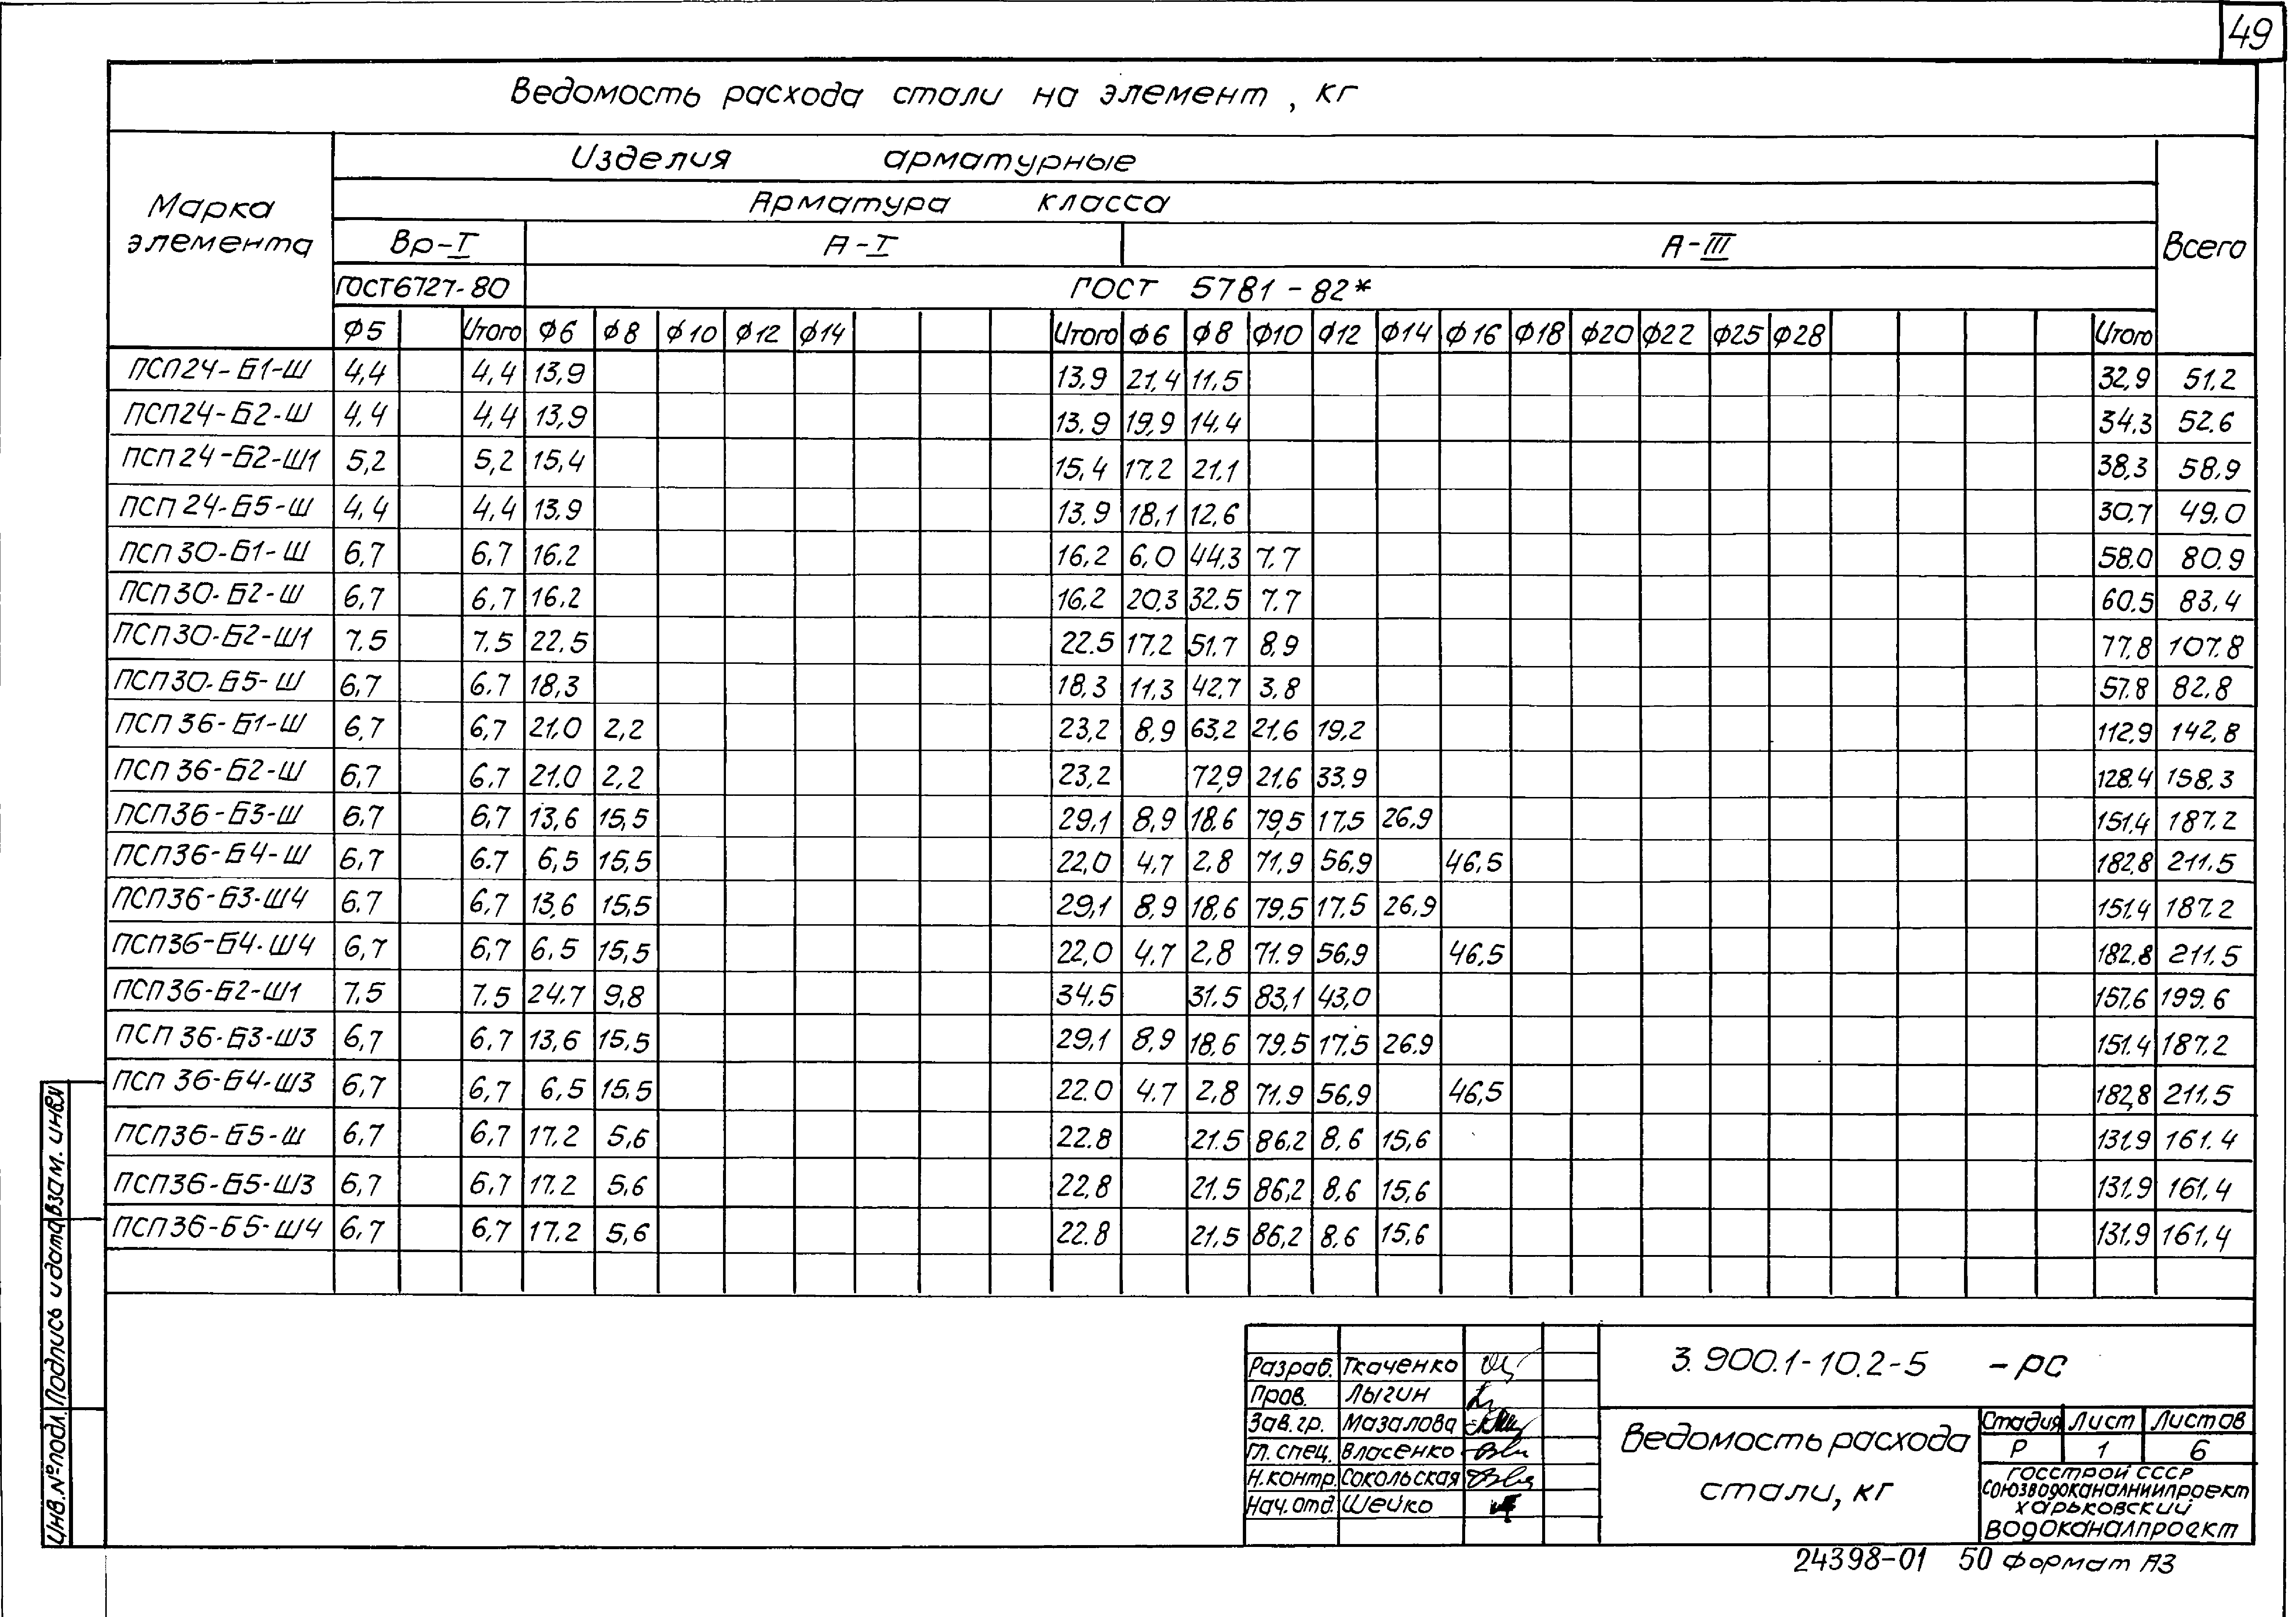 49
Ведомость расхода стали на элемент, кг
Марка элемента
Изделия арматурные
Всего
Арматура класса
Вр-I А-I А-III
ГОСТ 6727-80 ГОСТ 5781-82*
Ф5 Итого Ф6 Ф8 Ф10 Ф12 Ф14 Итого Ф6 Ф8 Ф10 Ф12 Ф14 Ф16 Ф18 Ф20 Ф22 Ф25 Ф28 Итого
ПСП24-Б1-Ш 4,4 4,4 13,9 13,9 21,4 11,5 32,9 51,2
ПСП24-Б2-Ш 4,4 4,4 13,9 13,9 19,9 14,4 34,3 52,6
ПСП24-Б2-Ш1 5,2 5,2 15,4 15,4 17,2 21,1 38,3 58,9
ПСП24-Б5-Ш 4,4 4,4 13,9 13,9 18,1 12,6 30,7 49,0
ПСП30-Б1-Ш 6,7 6,7 16,2 16,2 6,0 44,3 7,7 58,0 80,9
ПСП30-Б2-Ш 6,7 6,7 16,2 16,2 20,3 32,5 7,7 60,5 83,4
ПСП30-Б2-Ш1 7,5 7,5 22,5 22,5 17,2 51,7 8,9 77,8 107,8
ПСП30-Б5-Ш 6,7 6,7 18,3 18,3 11,3 42,7 3,8 57,8 82,8
ПСП36-Б1-Ш 6,7 6,7 21,0 2,2 23,2 8,9 63,2 21,6 19,2 112,9 142,8
ПСП36-Б2-Ш 6,7 6,7 21,0 2,2 23,2 72,9 21,6 33,9 128,4 158,3
ПСП36-Б3-Ш 6,7 6,7 13,6 15,5 29,1 8,9 18,6 79,5 17,5 26,9 151,4 187,2
ПСП36-Б4-Ш 6,7 6,7 6,5 15,5 22,0 4,7 2,8 71,9 56,9 46,5 182,8 211,5
ПСП36-Б3-Ш4 6,7 6,7 13,6 15,5 29,1 8,9 18,6 79,5 17,5 26,9 151,4 187,2
ПСП36-Б4-Ш4 6,7 6,7 6,5 15,5 22,0 4,7 2,8 71,9 56,9 46,5 182,8 211,5
ПСП36-Б2-Ш1 7,5 7,5 24,7 9,8 34,5 31,5 83,1 43,0 157,6 199,6
ПСП36-Б3-Ш3 6,7 6,7 13,6 15,5 29,1 8,9 18,6 79,5 17,5 26,9 151,4 187,2
ПСП36-Б4-Ш3 6,7 6,7 6,5 15,5 22,0 4,7 2,8 71,9 56,9 46,5 182,8 211,5
ПСП36-Б5-Ш 6,7 6,7 17,2 5,6 22,8 21,5 86,2 8,6 15,6 131,9 161,4
ПСП36-Б5-Ш3 6,7 6,7 17,2 5,6 22,8 21,5 86,2 8,6 15,6 131,9 161,4
ПСП36-Б5-Ш4 6,7 6,7 17,2 5,6 22,8 21,5 86,2 8,6 15,6 131,9 161,4
Инв.№подл. Подпись и дата Взам. инв.№
Разраб. Ткаченко
Пров. Лыгин
Зав. гр. Мазалова
Гл. спец. Власенко
Н. контр. Сокольская
Нач. отд. Шейко
3.900.1-10.2-5 -РС
Ведомость расхода
стали, кг
Стадия Лист Листов
Р 1 6
ГОССТРОЙ СССР
СОЮЗВОДОКАНАЛНИИПРОЕКТ
ХАРЬКОВСКИЙ
ВОДОКАНАЛПРОЕКТ
24398-01 50 Формат А3